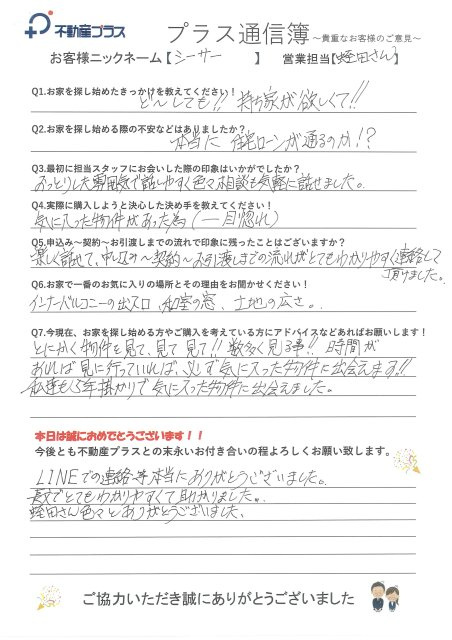 不動産プラス
プラス通信簿 ～貴重なお客様のご意見～
お客様ニックネーム【シーサー 】 営業担当【蛭田さん】
Q1.お家を探し始めたきっかけを教えてください!
ど～しても!! 持ち家が欲しくて!!
Q2.お家を探し始める際の不安などはありましたか?
本当に 住宅ローンが通るのか!?
Q3.最初に担当スタッフにお会いした際の印象はいかがでしたか?
おっとりした雰囲気で話しやすく色々相談も気軽に話せました。
Q4.実際に購入しようと決心した決め手を教えてください!
気に入った物件があった為(一目惚れ)
Q5.申込み～契約～お引渡しまでの流れで印象に残ったことはございますか?
楽しく話せて、申し込み～契約～お引渡しまでの流れがとてもわかりやすく連絡して
頂けました。
Q6.お家で一番のお気に入りの場所とその理由をお聞かせください!
インナーバルコニーの出入口 和室の窓、土地の広さ。
Q7.今現在、お家を探し始める方やご購入を考えている方にアドバイスなどあればお願いします!
とにかく物件を見て、見て 見て!! 数多く見る事!! 時間が
あれば見に行っていれば、必ず気に入った物件に出会えます!!
私達も5年掛かりで気に入った物件に出会えました。
本日は誠におめでとうございます!!
今後とも不動産プラスとの末永いお付き合いの程よろしくお願い致します。
LINEでの連絡等本当にありがとうございました。
長文でとてもわかりやすくて助かりました。
蛭田さん色々とありがとうございました、
ご協力いただき誠にありがとうございました